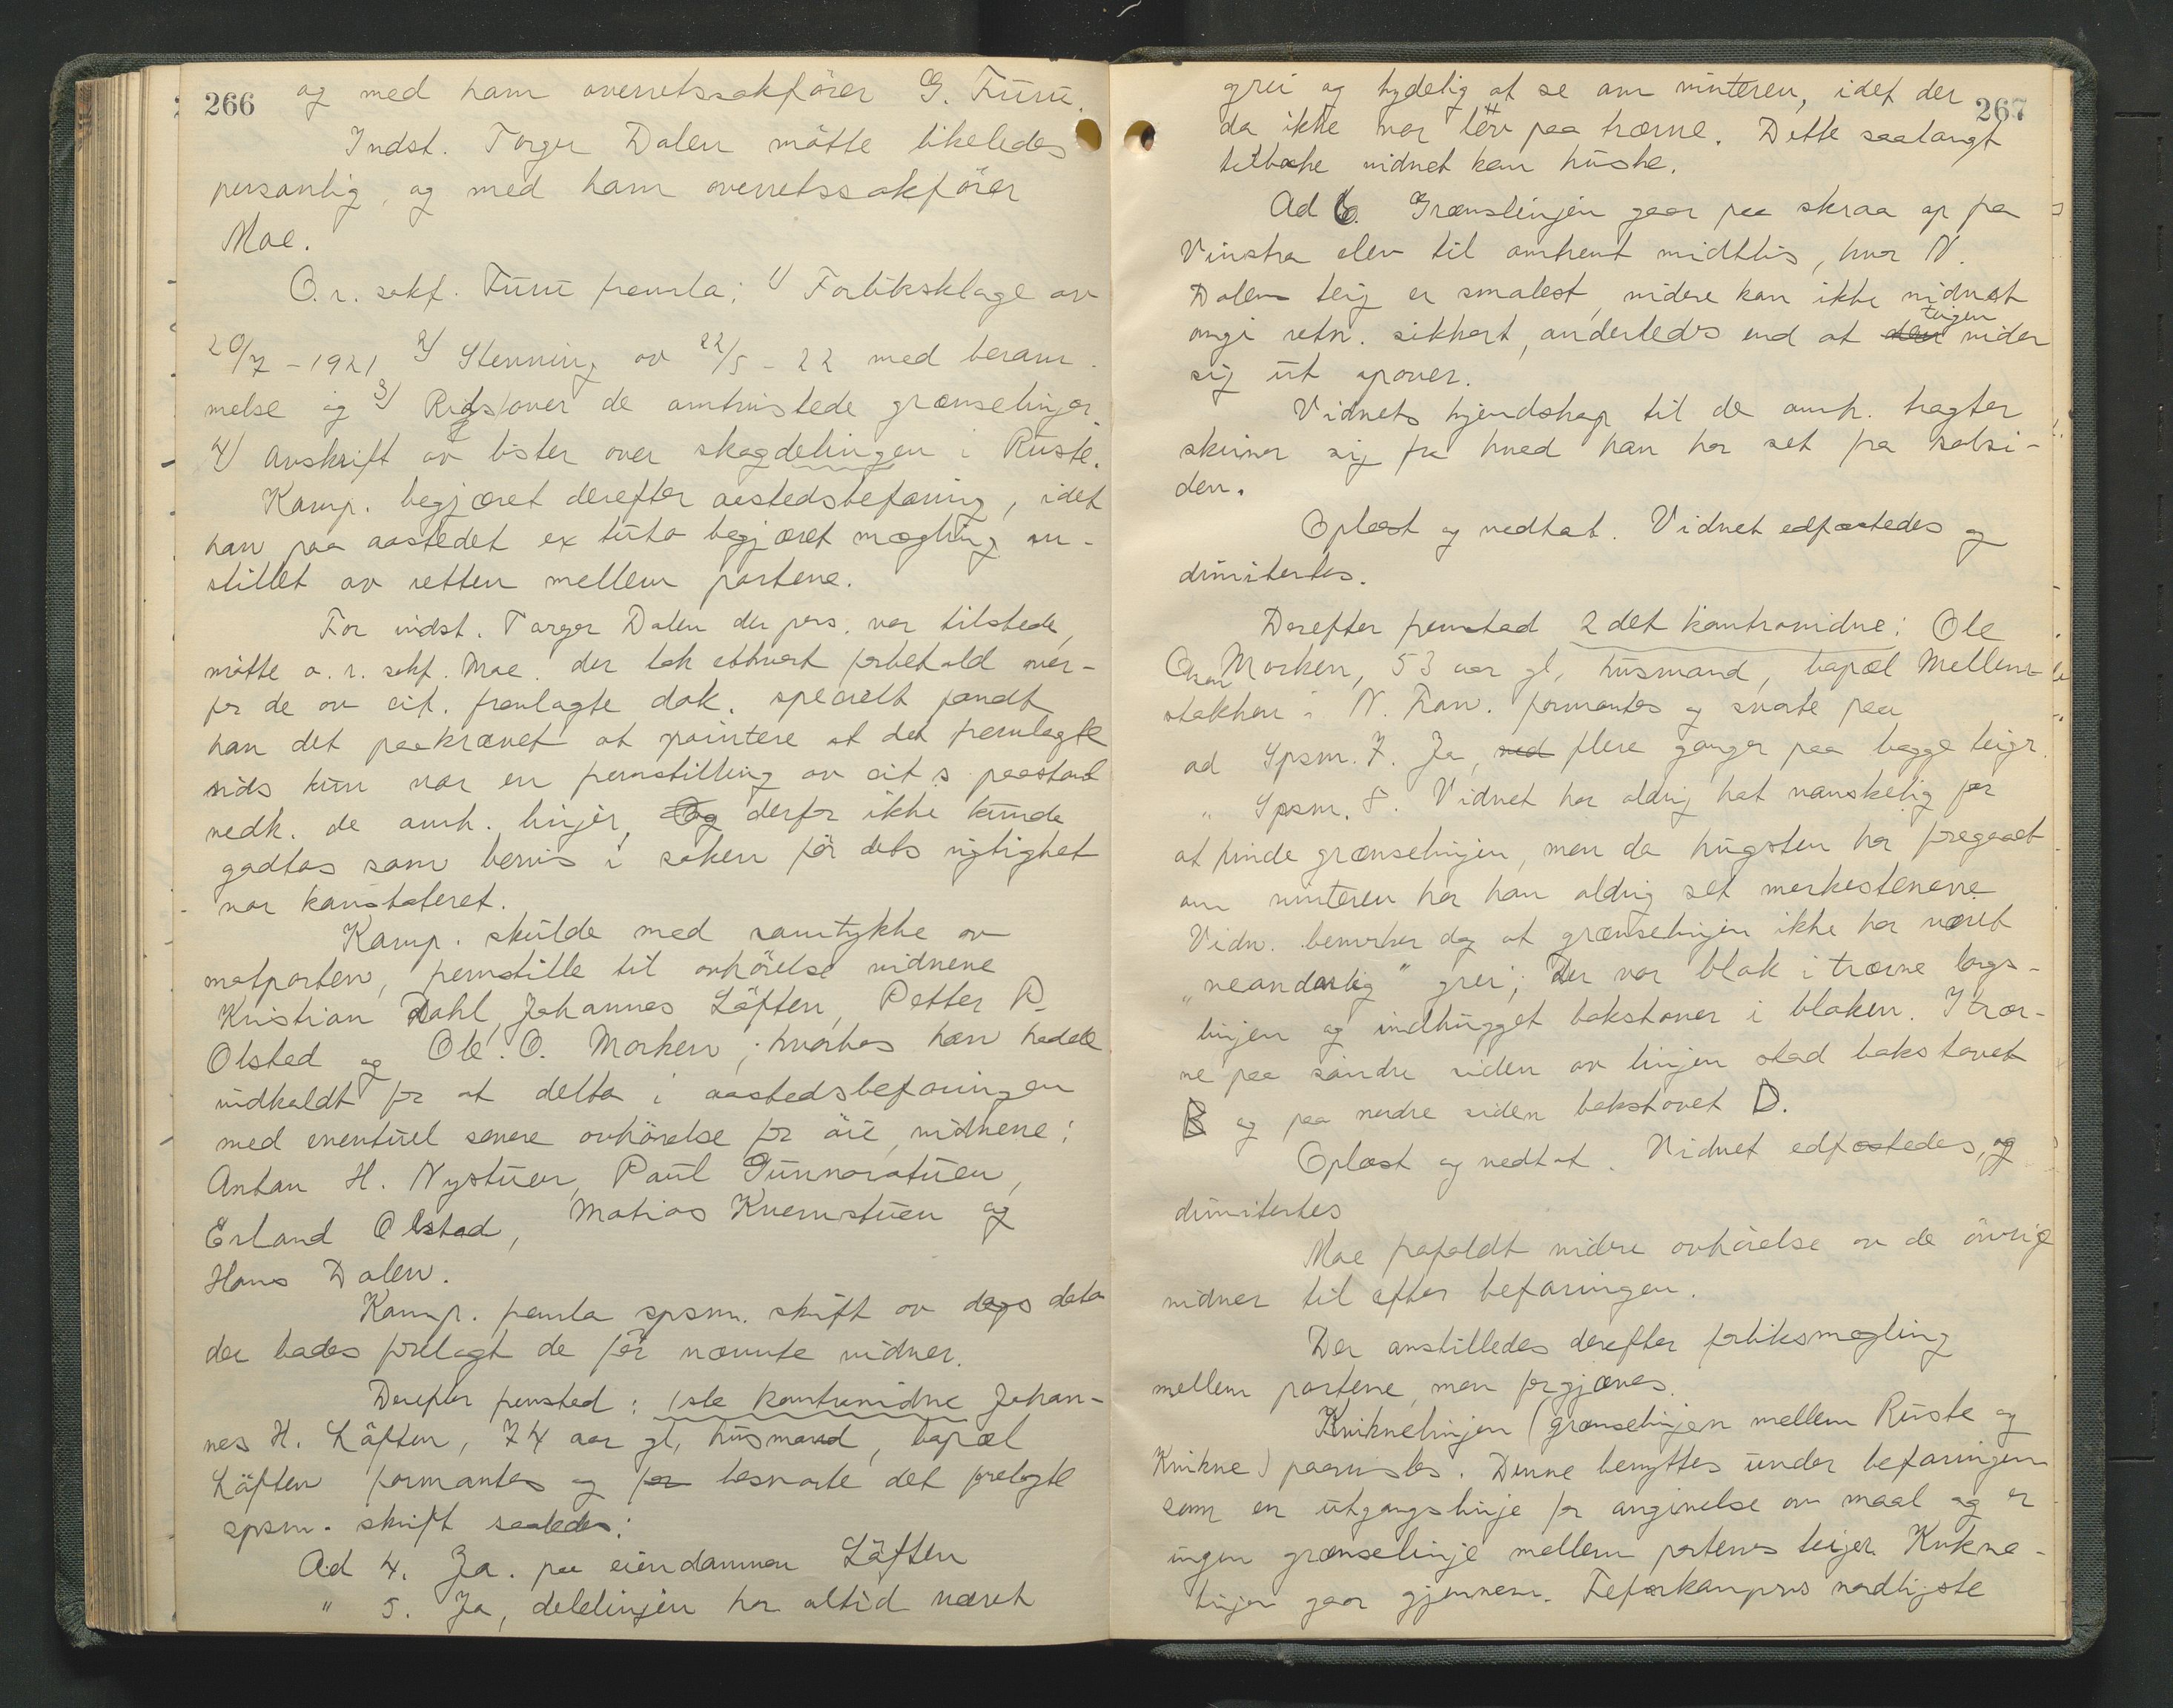 266
og med ham overretssakfører G. Furu.
Indst. Torger Dalen møtte likeledes
personlig, og med ham overretssakfører
Moe.
O.r. sakf. Furu fremla: 1/ Forliksklage av
20/7 - 1921 2/ Stevning av 22/5 - 22 med beram-
melse og 3/ Rids over de omtvistede grænselinjer.
4/ Avskrift av lister over skogdelingen i Ruste.
Komp. begjæret derefter aastedsbefaring, idet
han paa aastedet ex tuto begjæret mægling an-
stillet av retten mellem partene.
For indst. Torger Dalen der pers. var tilstede,
møtte o. r. sakf. Moe. der tok ethvert forbehold over-
for de av cit. fremlagte dok. specielt fandt
han det paakrævet at pointere at det fremlagte
rids kun var en fremstilling av cit.s paastand
vedk. de omh. linjer, og derfor ikke kunde
godtas som bevis i saken før dets rigtighet
var konstateret.
Komp. skulde med samtykke av
motparten, fremstille til avhørelse vidnene
Kristian Dahl, Johannes Løften, Petter P.
Olstad og Ole. O. Morken; hvorhos han hadde
indkaldt for at delta i aastedsbefaringen
med eventuel senere avhørelse for øie, vidnene:
Anton H. Nystuen, Paul Gunnarstuen,
Erland Olstad, Matias Kvernstuen og
Hans Dalen.
Komp. fremla spsm. skrift av dags dato
der bades forelagt de før nævnte vidner.
Derefter fremstod: 1ste kontravidne Johan-
nes H. Løften, 74 aar gl, husmand, bopæl
Løften formantes og for besvarte det forelagte
spsm. skrift saaledes:
Ad 4. Ja. paa eiendommen Løften
" 5. Ja, delelinjen har altid været
267
grei og tydelig at se om vinteren, idet der
da ikke var løv paa trærne. Dette saalangt
tilbake vidnet kan huske.
Ad 6. Grænslinjen gaar paa skraa op fra
Vinstra elev til omtrent midtlis, hvor N.
Dalens teig er smalest, videre kan ikke vidnet
angi retn. sikkert, anderledes end at den teigen vider
sig ut opover.
Vidnets kjendskap til de omh. tragter
skriver sig fra hvad han har set fra solsi-
den.
Oplæst og vedtat. Vidnet edfæstedes og
dimitertes.
Derefter fremstod 2det kontravidne: Ole
O. Morken, 53 aar gl, husmand, bopæl Mellem-
stakken i N. Fron. formantes og svarte paa
ad Spsm. 7. Ja, ved flere ganger paa begge teiger.
" Spsm. 8. Vidnet har aldrig hat vanskelig for
at finde grænselinjen, men da hugsten har foregaaet
om vinteren har han aldrig set merkestenene.
Vidn. bemerker dog at grænselinjen ikke har været
"neanderlig" grei; der var blok i trærne langs-
linjen og indhugget bokstaver i bloken. I trær-
ne paa søndre siden av linjen stod bokstavet
B og paa nordre siden bokstavet D.
Oplæst og vedtat. Vidnet edfæstedes, og
dimitertes
Moe frafaldt videre avhørelse av de øvrige
vidner til efter befaringen.
Der anstilledes derefter forliksmægling
mellem partene, men forgjæves.
Kviknelinjen (grænselinjen mellem Ruste og
Kvikne) paavistes. Denne benyttes under befaringen
som en utgangslinje for angivelse av maal og er
ingen grænselinje mellem partenes teiger. Kvikne-
linjen gaar gjennem Feforkampens nordligste